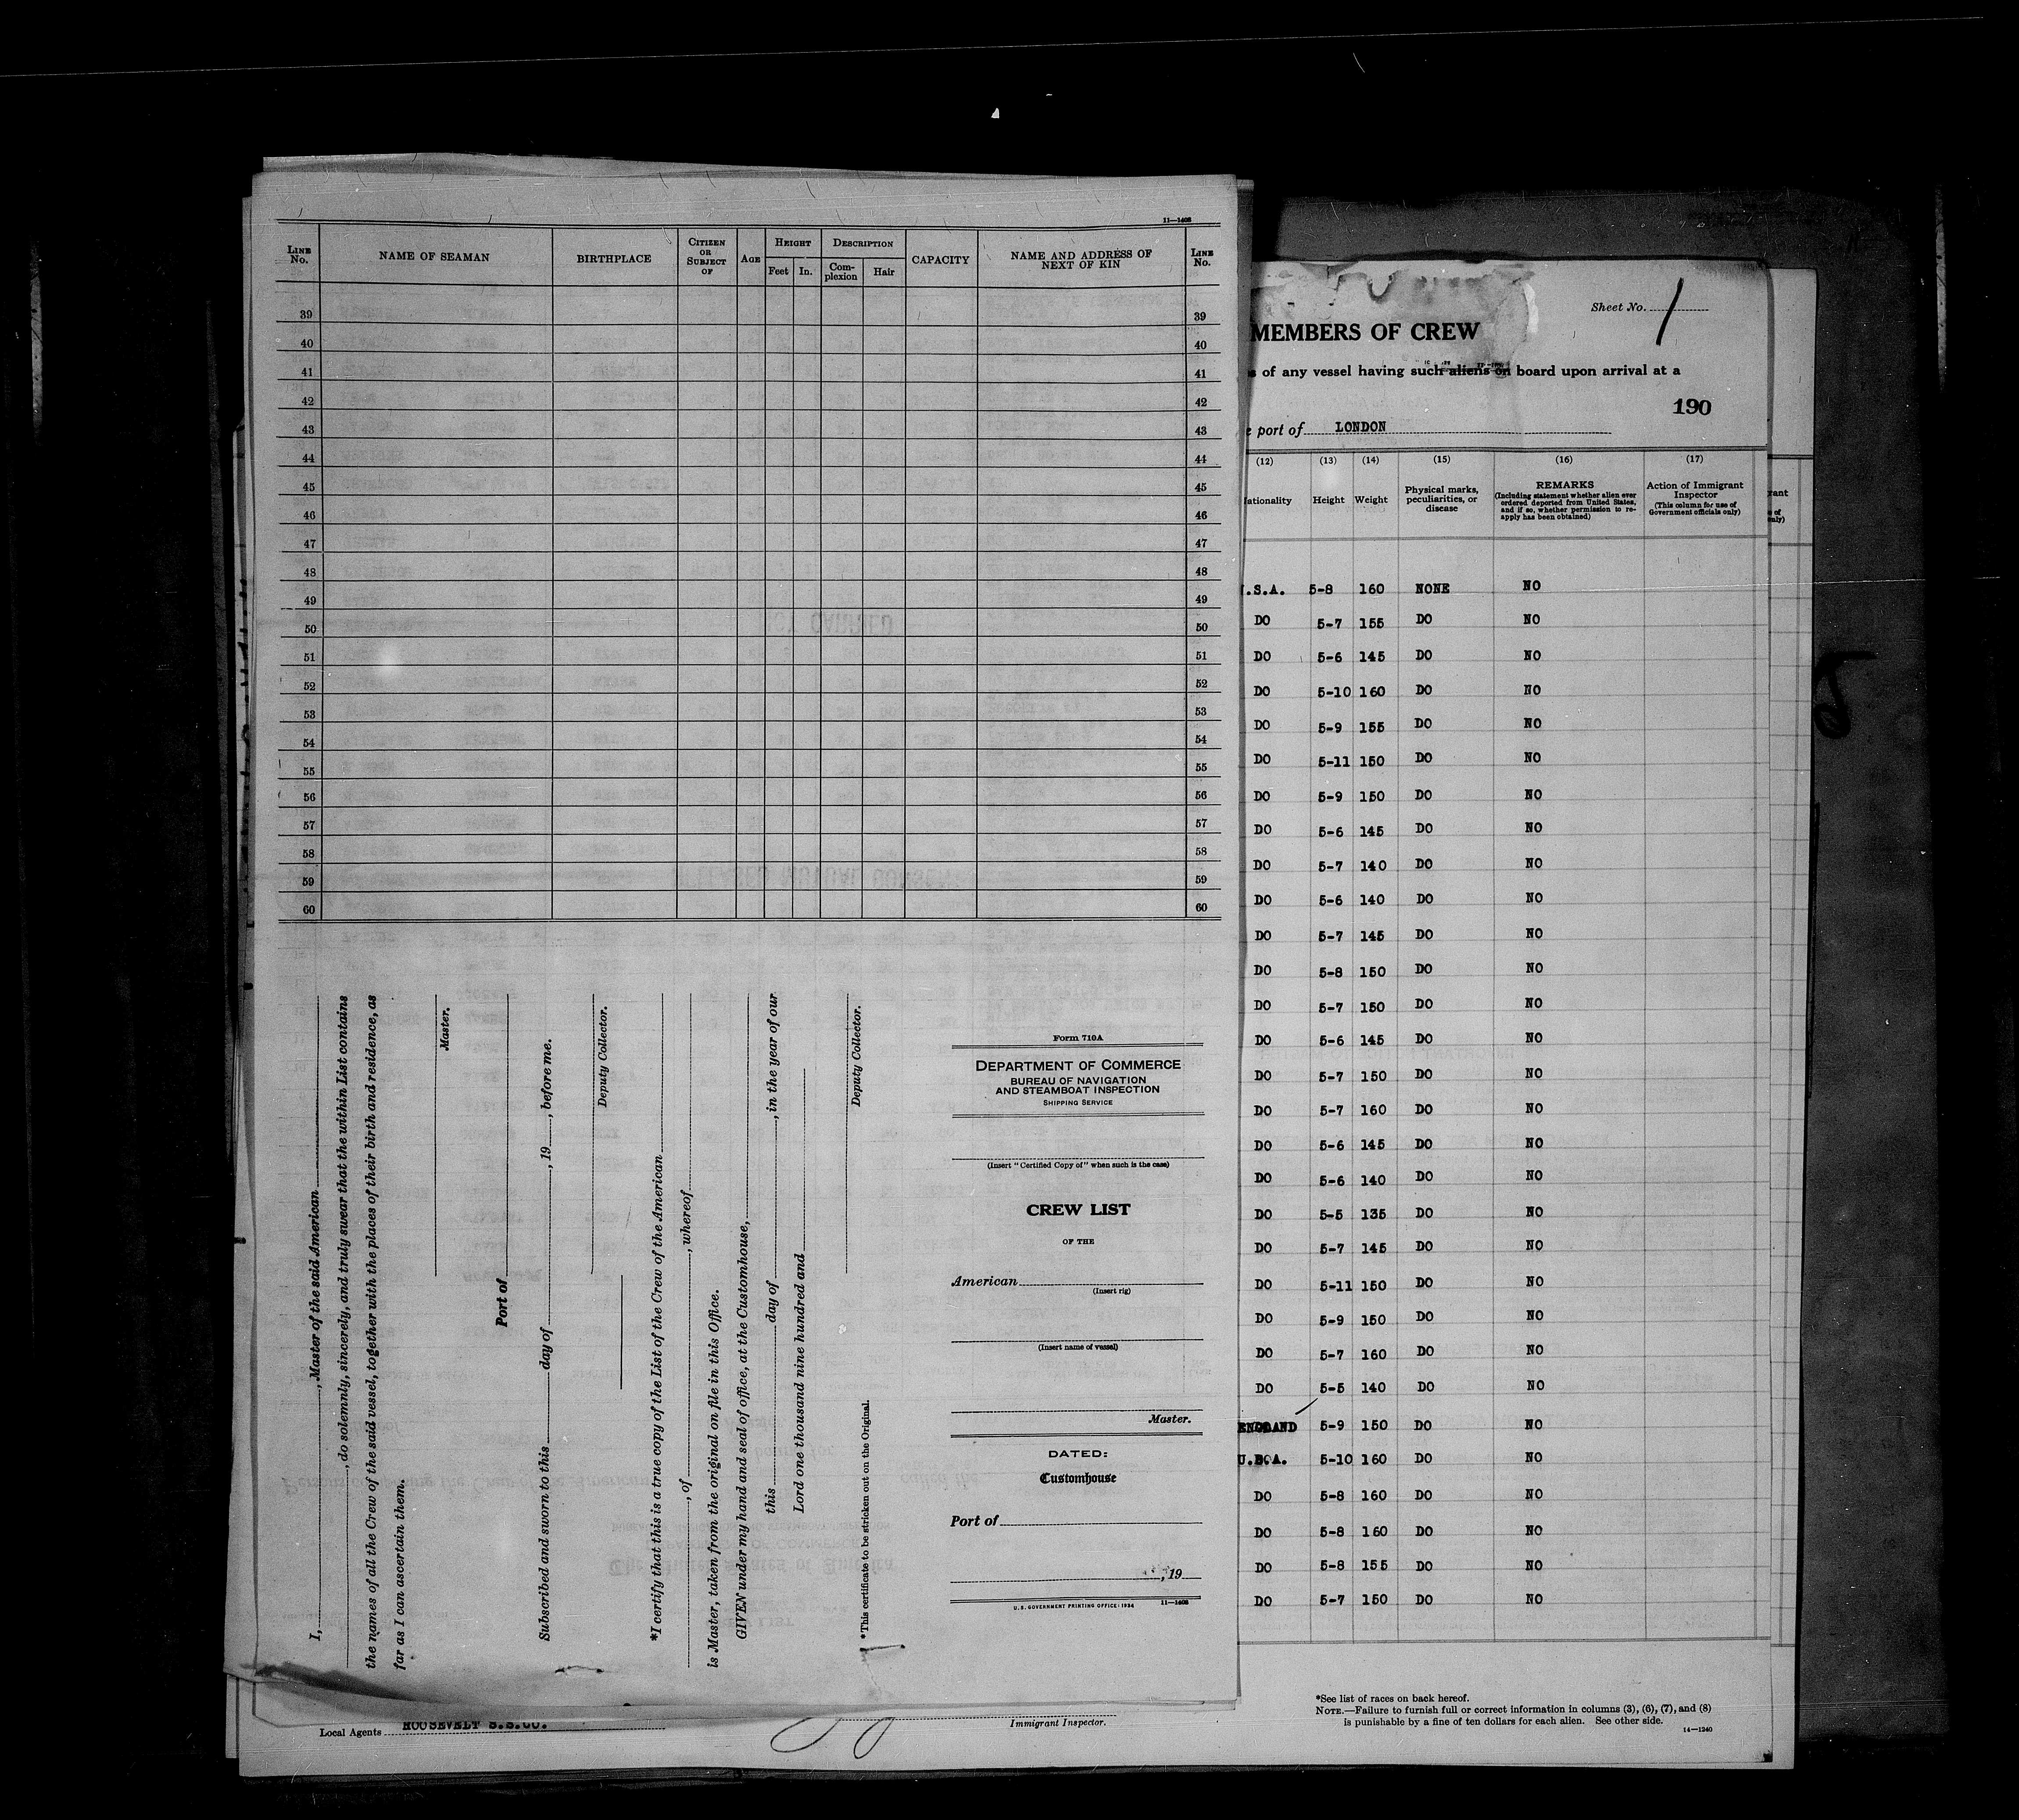 11—1408
LINE No. NAME OF SEAMAN BIRTHPLACE CITIZEN OR SUBJECT OF AGE HEIGHT Feet In. DESCRIPTION Complexion Hair CAPACITY NAME AND ADDRESS OF NEXT OF KIN LINE No.
39 39
40 40
41 41
42 42
43 43
44 44
45 45
46 46
47 47
48 48
49 49
50 50
51 51
52 52
53 53
54 54
55 55
56 56
57 57
58 58
59 59
60 60
I, , Master of the said American
, do solemnly, sincerely, and truly swear that the within List contains
the names of all the Crew of the said vessel, together with the places of their birth and residence, as
far as I can ascertain them.
Master.
Port of
Subscribed and sworn to this day of , 19 , before me.
Deputy Collector.
*I certify that this is a true copy of the List of the Crew of the American
, of , whereof
is Master, taken from the original on file in this Office.
GIVEN under my hand and seal of office, at the Customhouse,
this day of , in the year of our
Lord one thousand nine hundred and
Deputy Collector.
*This certificate to be stricken out on the Original.
Form 710A
DEPARTMENT OF COMMERCE
BUREAU OF NAVIGATION
AND STEAMBOAT INSPECTION
SHIPPING SERVICE
(Insert "Certified Copy of" when such is the case)
CREW LIST
OF THE
American
(Insert rig)
(Insert name of vessel)
Master.
DATED:
Customhouse
Port of
, 19
U. S. GOVERNMENT PRINTING OFFICE: 1934 11—1408
Local Agents ROOSEVELT S.S.CO.
Immigrant Inspector.
Sheet No. 1
MEMBERS OF CREW
of any vessel having such aliens on board upon arrival at a
190
port of LONDON
(12) (13) (14) (15) (16) (17)
ationality Height Weight Physical marks, peculiarities, or disease REMARKS (Including statement whether alien ever ordered deported from United States, and if so, whether permission to reapply has been obtained) Action of Immigrant Inspector (This column for use of Government officials only)
.S.A. 5-8 160 NONE NO
DO 5-7 155 DO NO
DO 5-6 145 DO NO
DO 5-10 160 DO NO
DO 5-9 155 DO NO
DO 5-11 150 DO NO
DO 5-9 150 DO NO
DO 5-6 145 DO NO
DO 5-7 140 DO NO
DO 5-6 140 DO NO
DO 5-7 145 DO NO
DO 5-8 150 DO NO
DO 5-7 150 DO NO
DO 5-6 145 DO NO
DO 5-7 150 DO NO
DO 5-7 160 DO NO
DO 5-6 145 DO NO
DO 5-6 140 DO NO
DO 5-5 135 DO NO
DO 5-7 145 DO NO
DO 5-11 150 DO NO
DO 5-9 150 DO NO
DO 5-7 160 DO NO
DO 5-5 140 DO NO
ENGLAND 5-9 150 DO NO
U.S.A. 5-10 160 DO NO
DO 5-8 160 DO NO
DO 5-8 160 DO NO
DO 5-8 155 DO NO
DO 5-7 150 DO NO
*See list of races on back hereof.
NOTE.—Failure to furnish full or correct information in columns (3), (6), (7), and (8)
is punishable by a fine of ten dollars for each alien. See other side.
14—1240